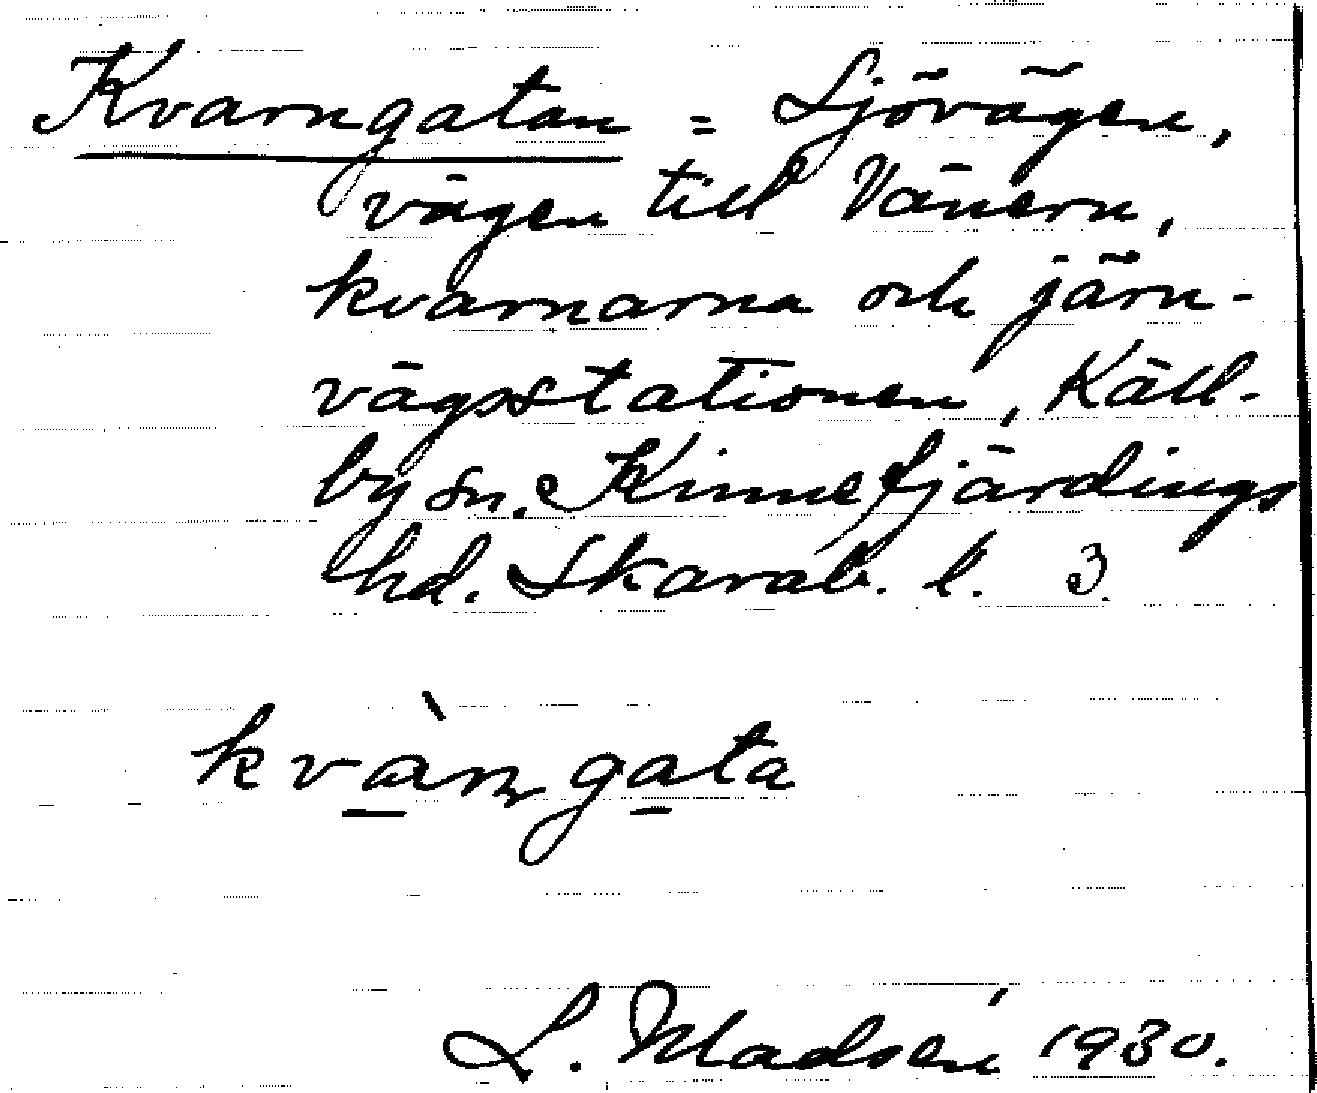 Kvarngatan = Sjövägen,
vägen till Vänern,
kvarnarna och järn-
vägsstationen, Käll-
by sn. Kinnefjärdings
hd. Skarab. l. 3.
kvàn gata
L. Madsén 1930.